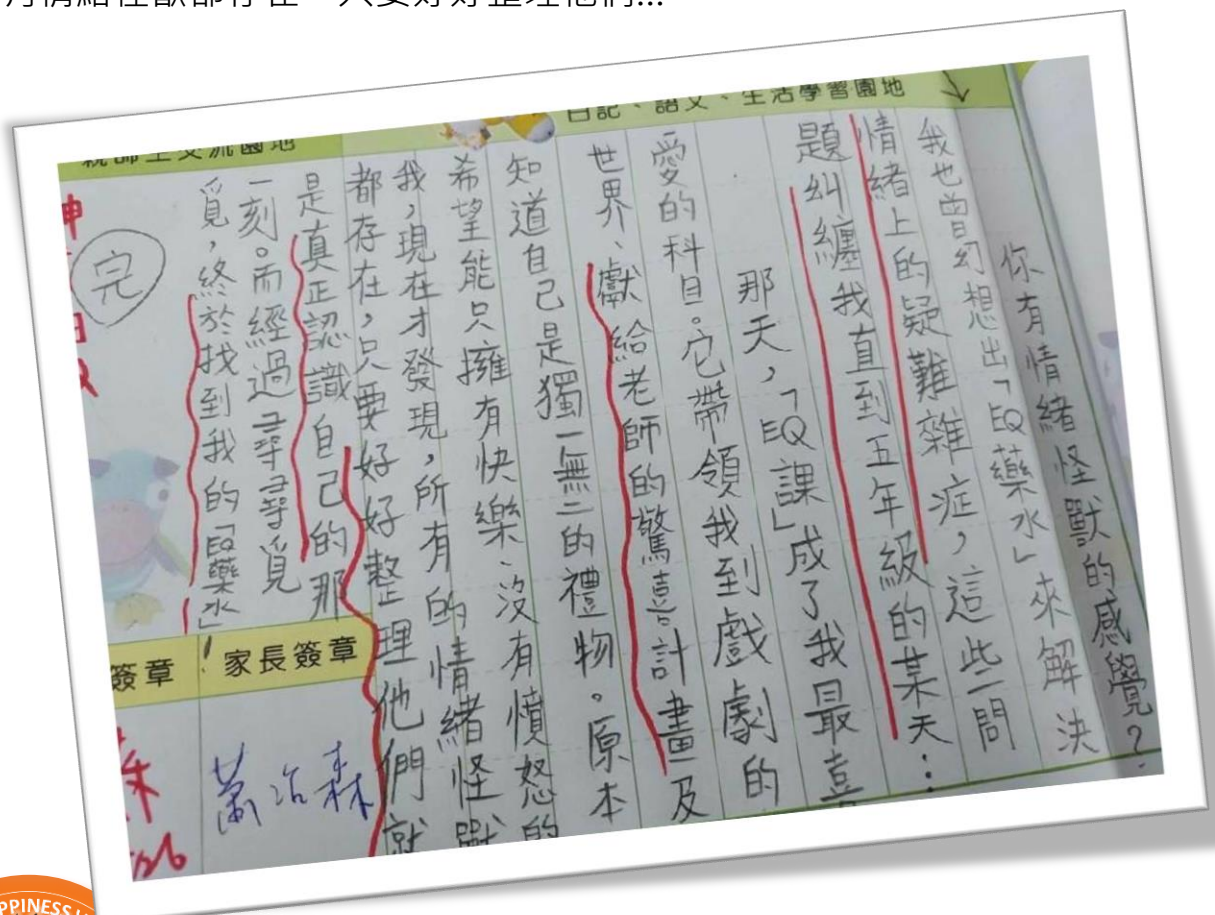 情緒怪獸都存在，只要好好整理他們...
日記、語文、生活學習園地
你有情緒怪獸的感覺？
我也曾幻想出「EQ藥水」來解決
情緒上的疑難雜症，這些問
題糾纏我直到五年級的某天：
那天，「EQ課」成了我最喜
愛的科目。它帶領我到戲劇的
世界、獻給老師的驚喜計畫及
知道自己是獨一無二的禮物。原本
希望能只擁有快樂、沒有憤怒的
我，現在才發現，所有的情緒怪獸
都存在，只要好好整理他們就
是真正認識自己的那
一刻。而經過尋尋覓
覓，終於找到我的「EQ藥水」！
親師生交流園地
完
家長簽章
簽章